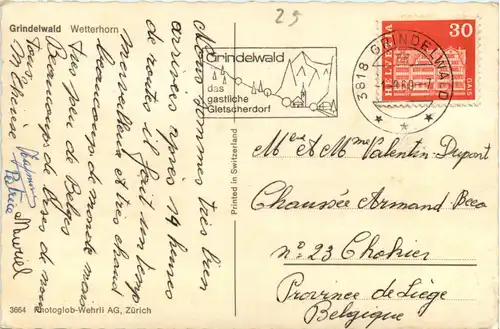 Grindelwald Wetterhorn
25
Nous sommes très bien
arrivés après 14 heures
de routes il fait un temps
merveilleux et très chaud
beaucoup de monde mais
très peu de Belges
Beaucoups de bises de nous
tous.
Muriel
3664 Photoglob-Wehrli AG, Zürich
Printed in Switzerland
Grindelwald
das
gastliche
Gletscherdorf
3818 GRINDELWALD
HELVETIA
30
GAIS
Mr et Mme Valentin-Dupont
Chaussée Armand-Beco
n° 23 Chokier
Province de Liège
Belgique